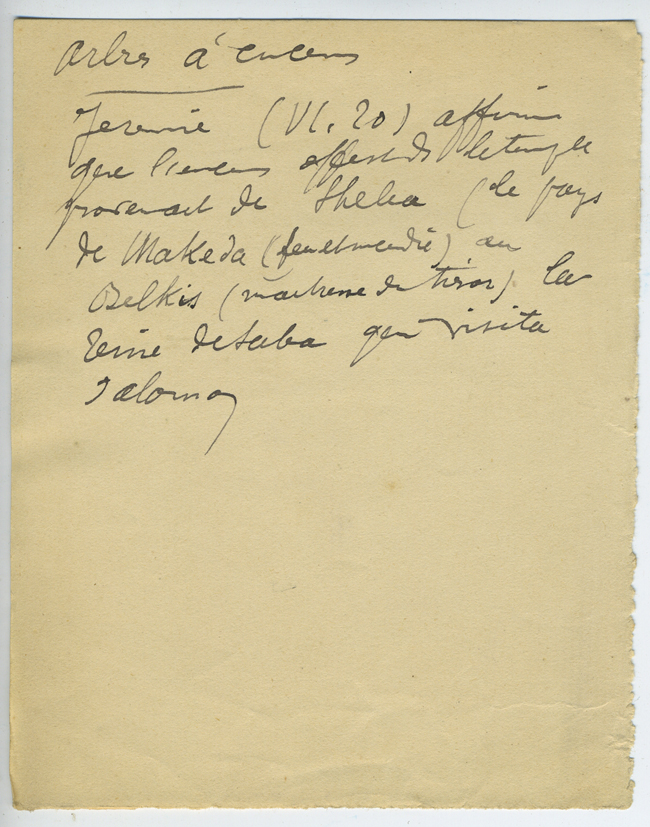 arbres à encens
Jeremie (VI, 20) affirme
que l'encens offert ds le temple
provenait de Sheba (le pays
de Makeda (feu et incendie) ou
Belkis (maitresse du tresor) la
reine de Saba qui visita
Salomon